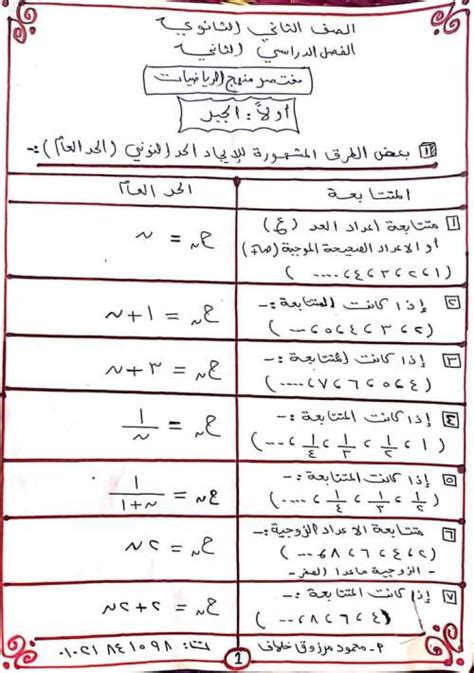 الصف الثاني الثانوي
الفصل الدراسي الثاني
مختصر منهج الرياضيات
أولاً: الجبر
١ بعض الطرق المشهورة للإيجاد الحد النوني (الحد العام):-
المتتابعة الحد العام
١ متتابعة أعداد العد (ع)
أو الاعداد الصحيحة الموجبة (ص+)
(١، ٢، ٣، ٤، ....) حن = ن
٢ إذا كانت المتتابعة:-
(٢، ٣، ٤، ٥، ...) حن = ١+ن
٣ إذا كانت المتتابعة:-
(٤، ٥، ٦، ٧، ....) حن = ٣+ن
٤ إذا كانت المتتابعة:-
(١، ١/٢، ١/٣، ١/٤، ...) حن = ١/ن
٥ إذا كانت المتتابعة:-
(١/٢، ١/٣، ١/٤، ....) حن = ١/(ن+١)
٦ متتابعة الاعداد الزوجية:-
(٢، ٤، ٦، ٨، ...) حن = ٢ن
- الزوجية ماعدا الصفر -
٧ إذا كانت المتتابعة:-
(٤، ٦، ٨، ...) حن = ٢+٢ن
م. محمود مرزوق خلاف
1
ت: ٠١٠٢١٨٤١٠٥٩٨